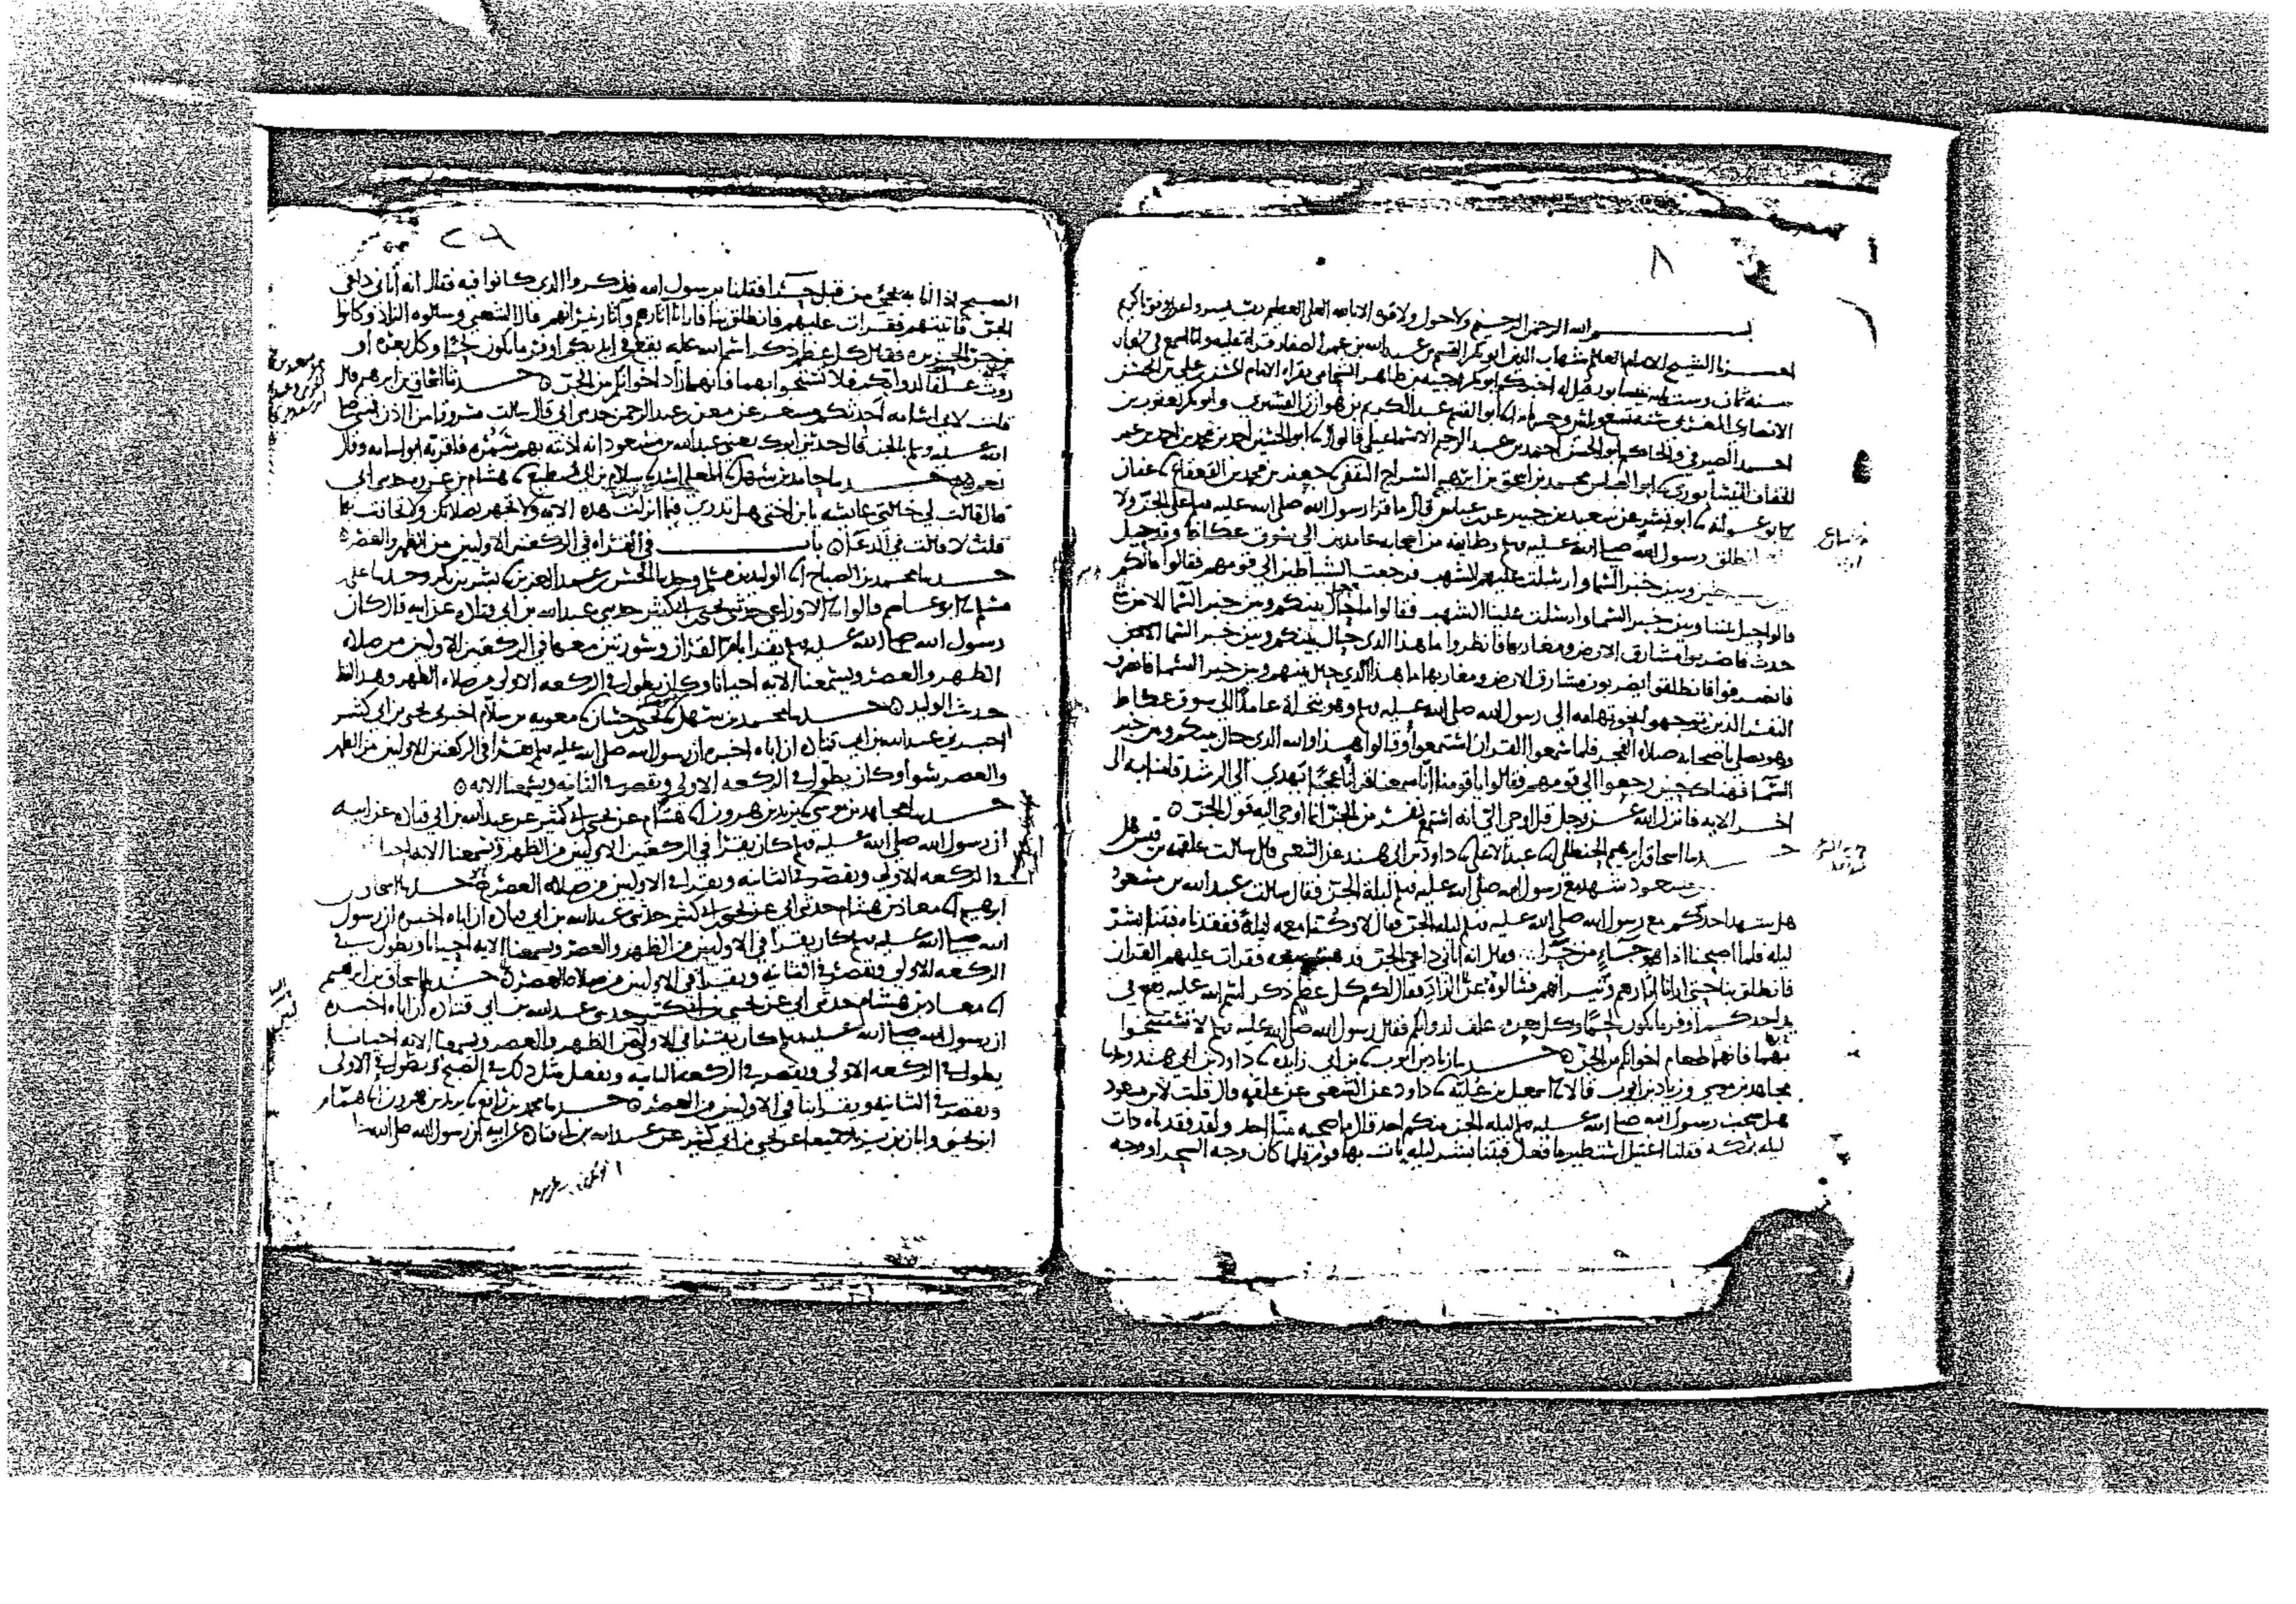 بسم الله الرحمن الرحيم ولا حول ولا قوة الا بالله العلي العظيم رب يسر واعن
اخبرنا الشيخ الامام العالم شهاب الدين ابو بكر القسم بن عبد الله بن عمر الصفار قراة عليه وانا اسمع في
سنه ثمان وستمايه بنيسابور قيل له اخبركم ابو بكر وجيه بن طاهر الشحامي بقراه الامام
الانصاري ابو الفتح عبد الكريم بن هوازن القشيري وابو بكر يعقوب بن
احمد الصيرفي والحاكم ابو الحسن احمد بن عبد الرحيم الاسماعيلي قالوا ابو الحسين احمد بن محمد بن احمد بن عمر
الخفاف النيسابوري ابو العباس محمد بن اسحق بن ابرهيم السراج الثقفي جعفر بن محمد بن القعقاع عفان
ابو عوانه ابو بشر عن سعيد بن جبير عن ابن عباس قال ما قرا رسول الله صلى الله عليه وسلم على الجن ولا
انطلق رسول الله صلى الله عليه وسلم وطايفه من اصحابه عامدين الى سوق عكاظ وقد حيل
بين وبين خبر السما وارسلت عليهم الشهب فرجعت الشياطين الى قومهم فقالوا مالكم
قالوا حيل بيننا وبين خبر السما وارسلت علينا الشهب فقالوا ما حال بينكم وبين خبر السما الا من
حدث فاضربوا مشارق الارض ومغاربها فانظروا ما هذا الذي حال بينكم وبين خبر السما
فانصرفوا فانطلقوا يضربون مشارق الارض ومغاربها ما هذا الذي حيل بينهم وبين خبر السما فانصرف
النفر الذين توجهوا نحو تهامه الى رسول الله صلى الله عليه وسلم وهو بنخلة عامدا الى سوق عكاظ
وهو يصلي باصحابه صلاه الفجر فلما سمعوا القران استمعوا وقالوا هذا والله الذي حال بينكم وبين خبر
السما فهنالك حين رجعوا الى قومهم فقالوا يا قومنا انا سمعنا قرانا عجبا يهدي الى الرشد فامنا به الى
اخر الايه فانزل الله عز وجل قل اوحي الي انه استمع نفر من الجن انما اوحي اليه قول الجن
حدثنا اسحاق بن ابرهيم الحنظلي عبد الاعلى داود بن ابي هند عن الشعبي قال سالت علقمه بن قيس هل
مسعود شهد مع رسول الله صلى الله عليه وسلم ليلة الجن فقال سالت عبد الله بن مسعود
هل شهد احد منكم مع رسول الله صلى الله عليه وسلم ليله الجن فقال لا وكنا معه ليلة ففقدناه فبتنا بشر
ليله فلما اصبحنا اذا هو جاء من حرا وقال انه اتاني داعي الجن فذهبت معه فقرات عليهم القران
فانطلق بنا حتى ارانا اثارهم ونيرانهم فسالوه عن الزاد فقال لكم كل عظم ذكر اسم الله عليه يقع في
يد احدكم اوفر ما يكون لحما وكل بعره علف لدوابكم فقال رسول الله صلى الله عليه وسلم لا تستنجوا
بهما فانهما طعام اخوانكم من الجن حدثنا زياد بن ايوب بن ابي زايده داود بن ابي هند وحدثنا
مجاهد بن موسى وزياد بن ايوب قالا اسمعيل بن علية داود عن الشعبي عن علقمه قال قلت لابن مسعود
هل صحب رسول الله صلى الله عليه وسلم ليله الجن منكم احد قال ما صحبه منا احد ولقد فقدناه ذات
ليله بمكه فقلنا اغتيل استطير ما فعل فبتنا بشر ليله بات بها قوم فلما كان وجه السحر او وجه
الصبح اذا نحن به يجئ من قبل حرا فقلنا يا رسول الله فذكروا الذي كانوا فيه فقال انه اتاني داعي
الجن فاتيتهم فقرات عليهم فانطلق بنا فارانا اثارهم واثار نيرانهم قال الشعبي وسالوه الزاد وكانوا
من جن الجزيره فقال كل عظم ذكر اسم الله عليه يقع في ايديكم اوفر ما يكون لحما وكل بعره او
روث علفا لدوابكم فلا تستنجوا بهما فانهما زاد اخوانكم من الجن حدثنا اسحاق بن ابرهيم قال
قلت لابي اسامه احدثكم مسعر عن معن بن عبد الرحمن حدثني ابي قال سالت مسروقا من اذن النبي صلى
الله عليه وسلم بالجن قال حدثني ابوك يعني عبد الله بن مسعود انه اذنته بهم سمره فاقر به ابو اسامه وقال
نعم حدثنا حامد بن سهل المعلى بن اسد سلام بن ابي مطيع هشام بن عروه حدثني ابي
قال قالت لي خالتي عائشه يا ابن اختي هل تدري فيما انزلت هذه الايه ولا تجهر بصلاتك ولا تخافت بها
قلت لا قالت في الدعا باب في القراه في الركعتين الاوليين من الظهر والعصر
حدثنا محمد بن الصباح الوليد بن مسلم وحدثنا الحسن بن عبد العزيز بشر بن بكر وحدثنا علي
مسلم ابو عاصم قالوا الاوزاعي حدثني يحيى بن ابي كثير حدثني عبد الله بن ابي قتاده عن ابيه قال كان
رسول الله صلى الله عليه وسلم يقرا بام القران وسورتين معها في الركعتين الاوليين من صلاه
الظهر والعصر ويسمعنا الايه احيانا وكان يطول في الركعه الاولى من صلاه الظهر وهذا لفظ
حديث الوليد حدثنا محمد بن سهل يحيى بن حسان معويه بن سلام اخبرني يحيى بن ابي كثير
اخبرني عبد الله بن ابي قتاده ان اباه اخبره ان رسول الله صلى الله عليه وسلم يقرا في الركعتين الاوليين من الظهر
والعصر سوا وكان يطول في الركعه الاولى ويقصر في الثانيه ويسمعنا الايه
حدثنا مجاهد بن موسى يزيد بن هرون هشام عن يحيى بن ابي كثير عن عبد الله بن ابي قتاده عن ابيه
ان رسول الله صلى الله عليه وسلم كان يقرا في الركعتين الاوليين من الظهر ويسمعنا الايه احيانا
في الركعه الاولى ويقصر في الثانيه ويقرا في الاوليين من صلاه العصر حدثنا اسحاق بن
ابرهيم معاذ بن هشام حدثني ابي عن يحيى بن ابي كثير حدثني عبد الله بن ابي قتاده ان اباه اخبره ان رسول
الله صلى الله عليه وسلم كان يقرا في الاوليين من الظهر والعصر ويسمعنا الايه احيانا ويطول في
الركعه الاولى ويقصر في الثانيه ويقرا في الاوليين من صلاه العصر حدثنا اسحاق بن ابرهيم
معاذ بن هشام حدثني ابي عن يحيى بن ابي كثير حدثني عبد الله بن ابي قتاده ان اباه اخبره
ان رسول الله صلى الله عليه وسلم كان يقرا في الاوليين من الظهر والعصر ويسمعنا الايه احيانا
يطول في الركعه الاولى ويقصر في الركعه الثانيه ويفعل مثل ذلك في الصبح يطول في الاولى
ويقصر في الثانيه ويقرا بنا في الاوليين من العصر حدثنا محمد بن رافع يزيد بن هرون هشام
ابن يحيى وابان بن يزيد جميعا عن يحيى بن ابي كثير عن عبد الله بن ابي قتاده عن ابيه ان رسول الله صلى الله